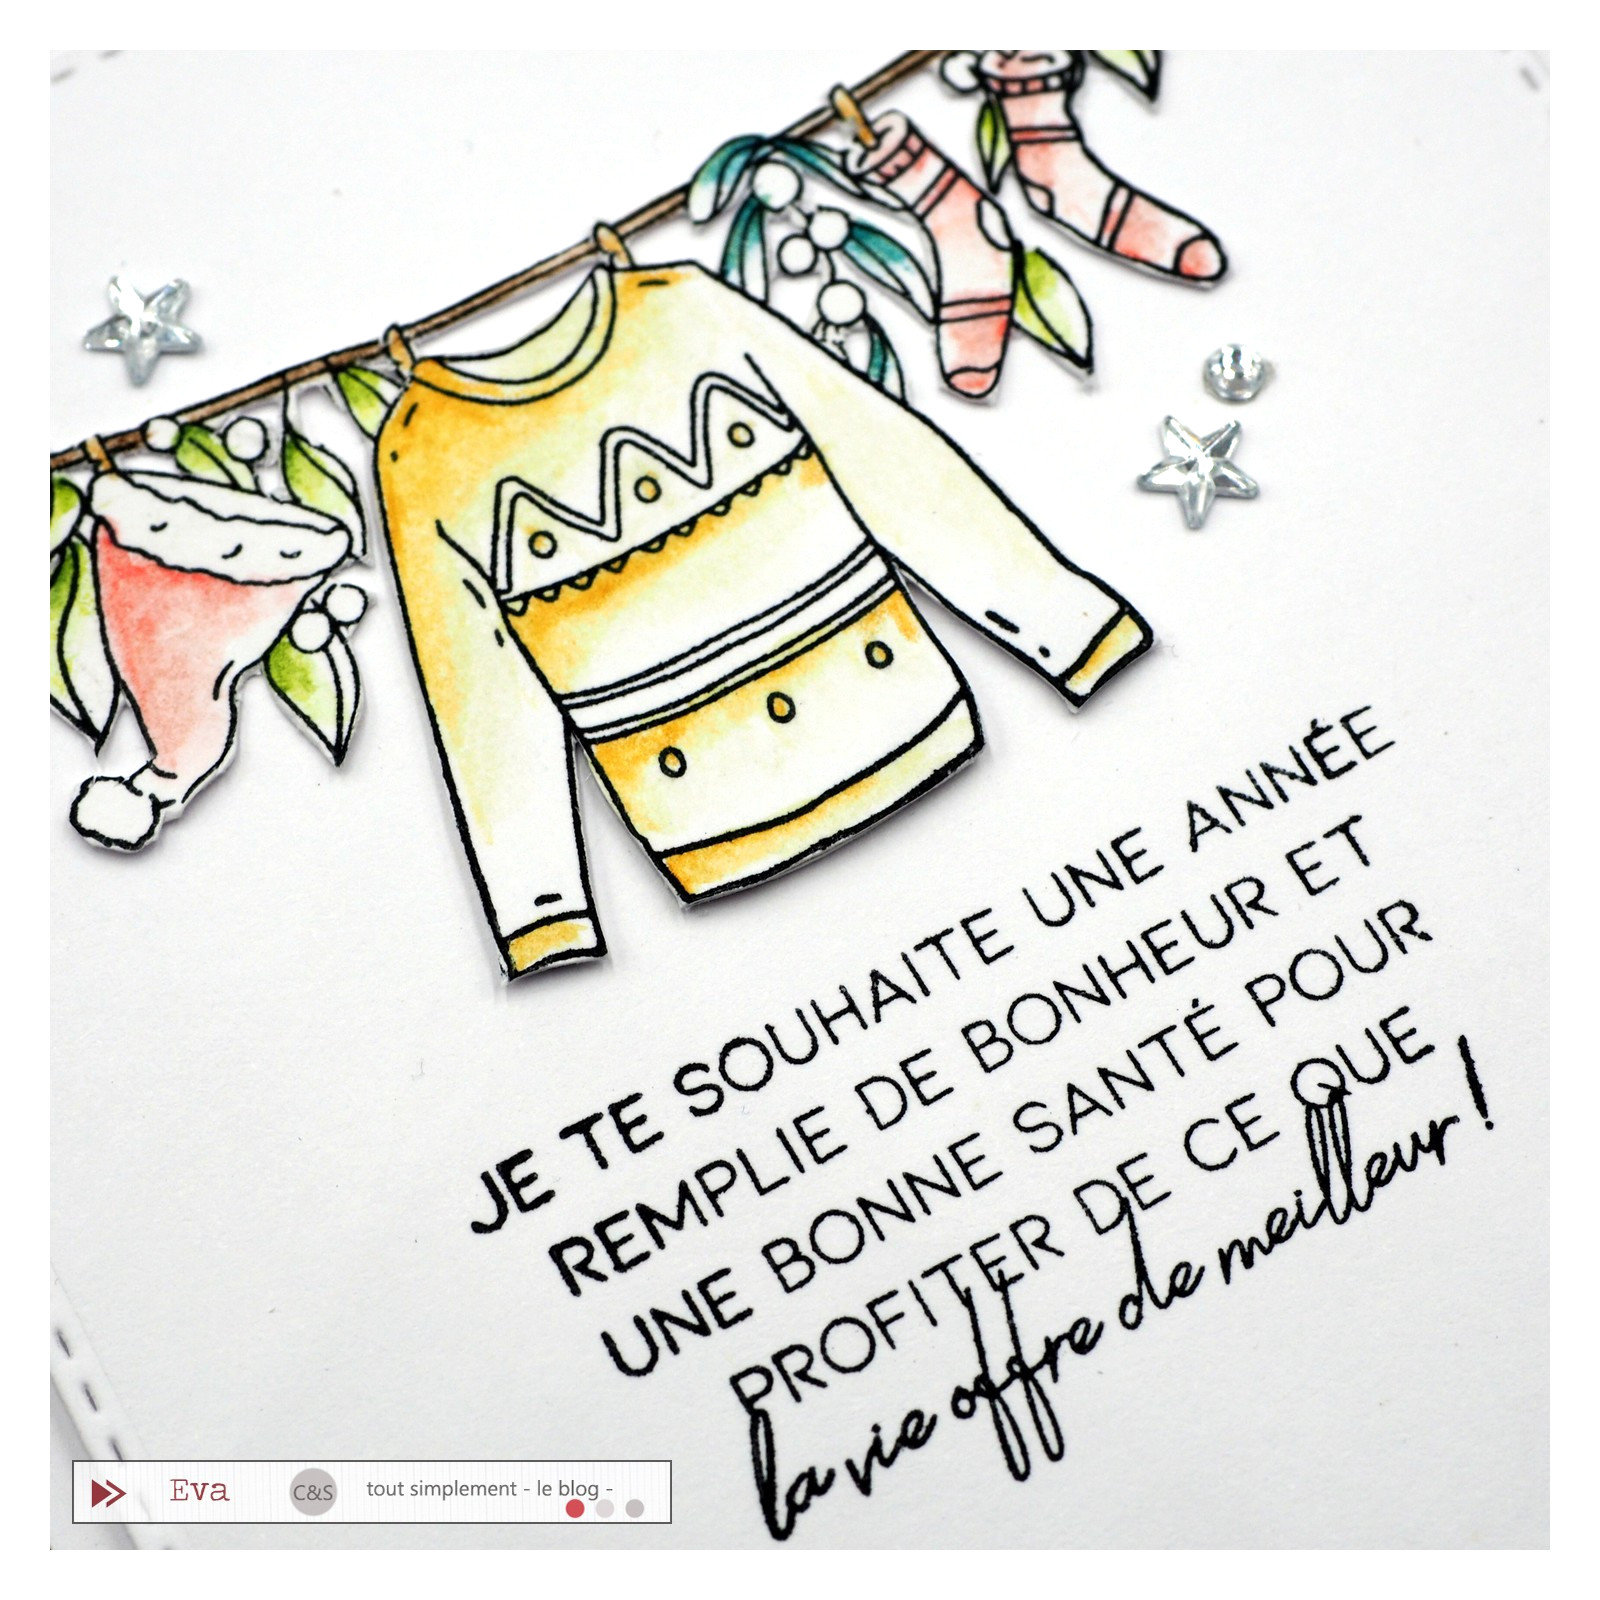 JE TE SOUHAITE UNE ANNÉE
REMPLIE DE BONHEUR ET
UNE BONNE SANTÉ POUR
PROFITER DE CE QUE
la vie offre de meilleur !
Eva C&S tout simplement - le blog -